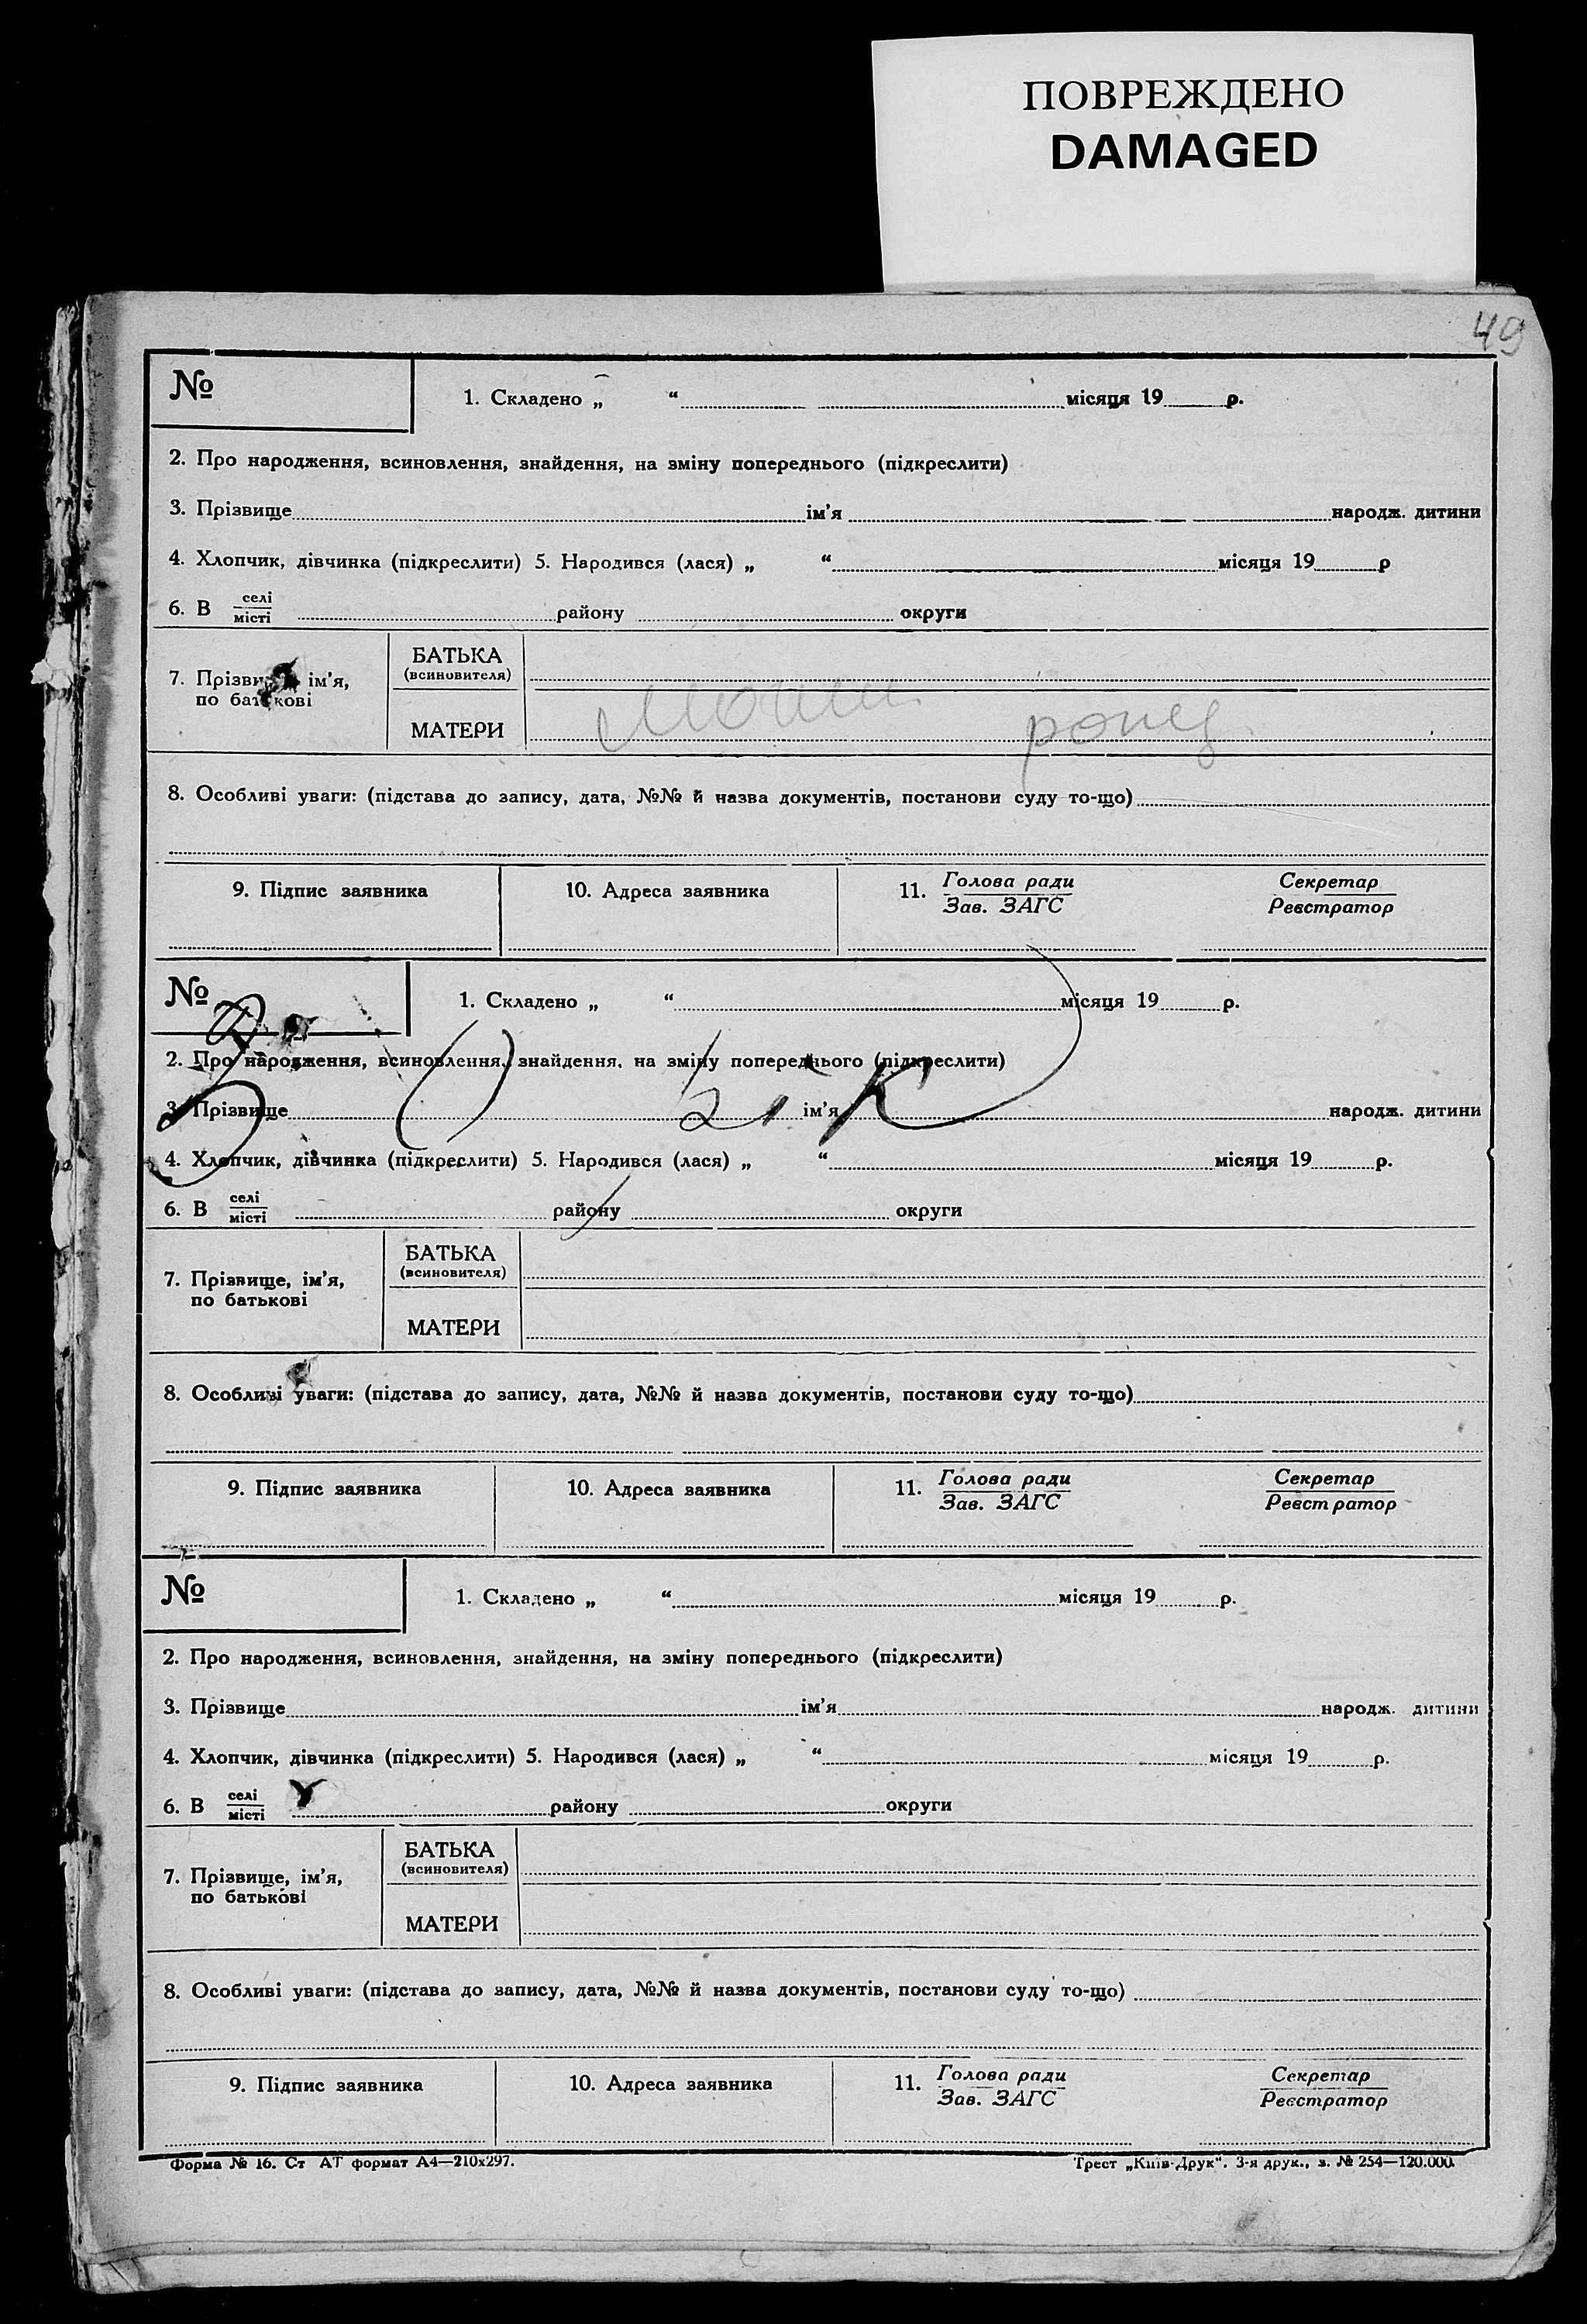 ПОВРЕЖДЕНО
DAMAGED
49
№
1. Складено „ “ місяця 19 р.
2. Про народження, всиновлення, знайдення, на зміну попереднього (підкреслити)
3. Прізвище ім'я народж. дитини
4. Хлопчик, дівчинка (підкреслити) 5. Народився (лася) „ “ місяця 19 р
6. В селі місті району округи
7. Прізвище, ім'я,
по батькові
БАТЬКА
(всиновителя)
МАТЕРИ
8. Особливі уваги: (підстава до запису, дата, №№ й назва документів, постанови суду то-що)
9. Підпис заявника
10. Адреса заявника
11. Голова ради
Зав. ЗАГС
Секретар
Реєстратор
№
1. Складено „ “ місяця 19 р.
2. Про народження, всиновлення, знайдення, на зміну попереднього (підкреслити)
3. Прізвище ім'я народж. дитини
4. Хлопчик, дівчинка (підкреслити) 5. Народився (лася) „ “ місяця 19 р.
6. В селі місті району округи
7. Прізвище, ім'я,
по батькові
БАТЬКА
(всиновителя)
МАТЕРИ
8. Особливі уваги: (підстава до запису, дата, №№ й назва документів, постанови суду то-що)
9. Підпис заявника
10. Адреса заявника
11. Голова ради
Зав. ЗАГС
Секретар
Реєстратор
№
1. Складено „ “ місяця 19 р.
2. Про народження, всиновлення, знайдення, на зміну попереднього (підкреслити)
3. Прізвище ім'я народж. дитини
4. Хлопчик, дівчинка (підкреслити) 5. Народився (лася) „ “ місяця 19 р.
6. В селі місті району округи
7. Прізвище, ім'я,
по батькові
БАТЬКА
(всиновителя)
МАТЕРИ
8. Особливі уваги: (підстава до запису, дата, №№ й назва документів, постанови суду то-що)
9. Підпис заявника
10. Адреса заявника
11. Голова ради
Зав. ЗАГС
Секретар
Реєстратор
Форма № 16. Ст АТ формат А4—210х297.
Трест „Київ-Друк“. 3-я друк., з. № 254—120.000.